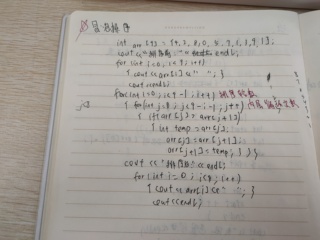 冒泡排序
int arr[9] = {4, 2, 8, 0, 5, 7, 1, 3, 9};
cout << "排序前:" << endl;
for (int i=0; i<9; i++)
{ cout << arr[i] << " "; }
cout << endl;
for (int i=0; i<9-1; i++)
j=0 { for (int j=0; j<9-i-1; j++)
{ if (arr[j] > arr[j+1])
{ int temp = arr[j];
arr[j] = arr[j+1];
arr[j+1] = temp; } } }
cout << "排序后" << endl;
for (int i=0; i<9; i++)
{ cout << arr[i] << " "; }
cout << endl;